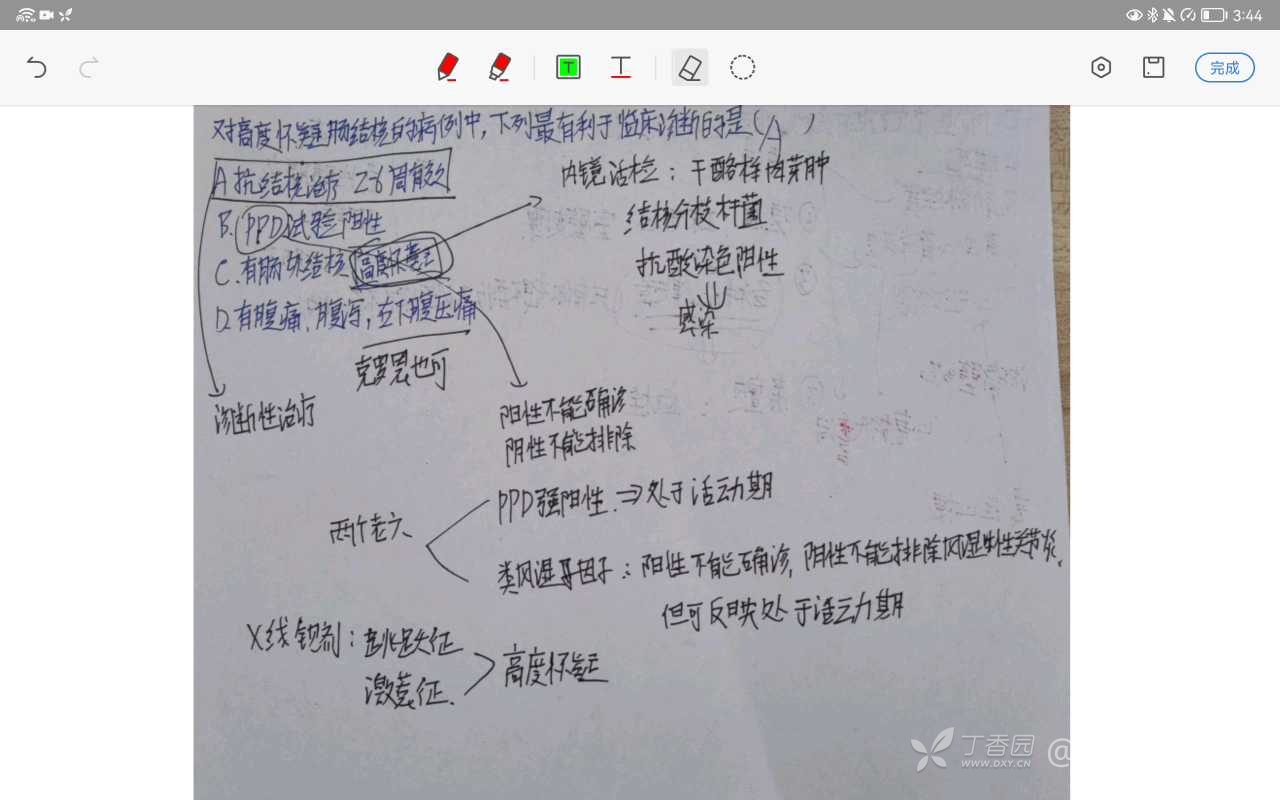 3:44
完成
对高度怀疑肠结核的病例中，下列最有利于临床诊断的是（A）
A 抗结核治疗 2-6周有效
B. PPD试验阳性
C. 有肠外结核 高度怀疑
D. 有腹痛、腹泻，右下腹压痛
克罗恩也可
诊断性治疗
内镜活检：干酪样肉芽肿
结核分枝杆菌
抗酸染色阳性
感染
阳性不能确诊
阴性不能排除
两个老六
PPD强阳性 ⇒ 处于活动期
类风湿因子：阳性不能确诊，阴性不能排除风湿性关节炎。
但可反映处于活动期
X线钡剂：跳跃征
激惹征
高度怀疑
丁香园
WWW.DXY.CN
@